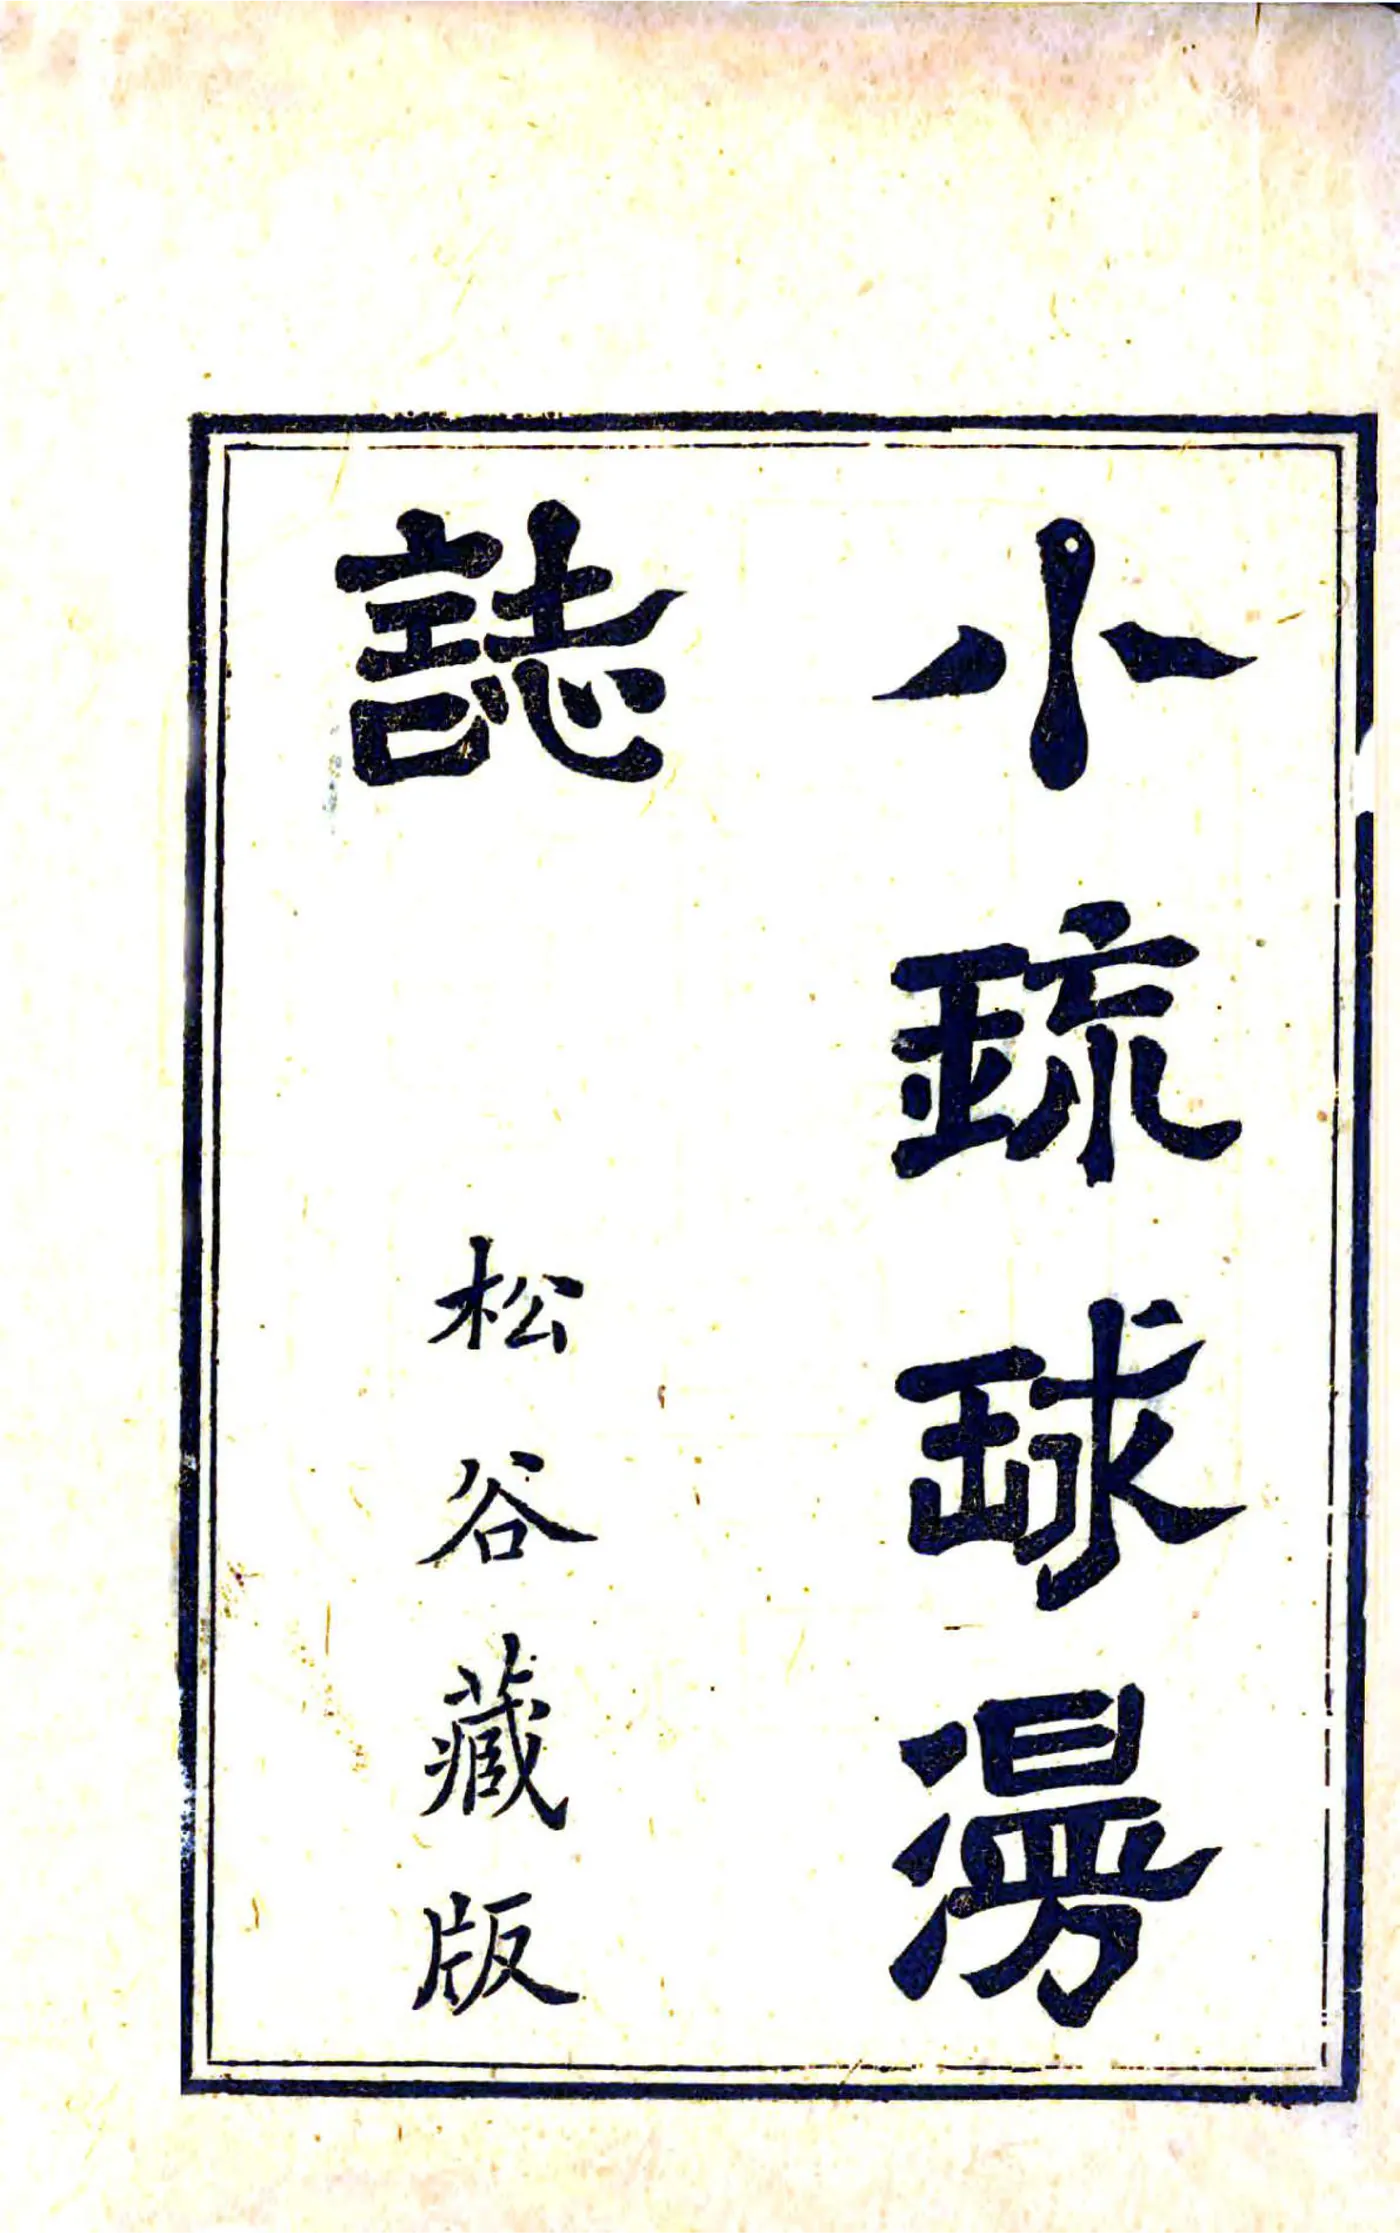 小琉球漫
誌
松谷藏版